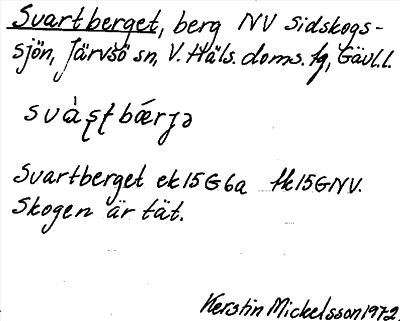 Svartberget, berg NV Sidskogs-
sjön, Järvsö sn, V. Häls. doms. tg, Gävl. l.
svàʂʈbǽrjə
Svartberget ek15G6a tk15GNV.
Skogen är tät.
Kerstin Mickelsson 1972.